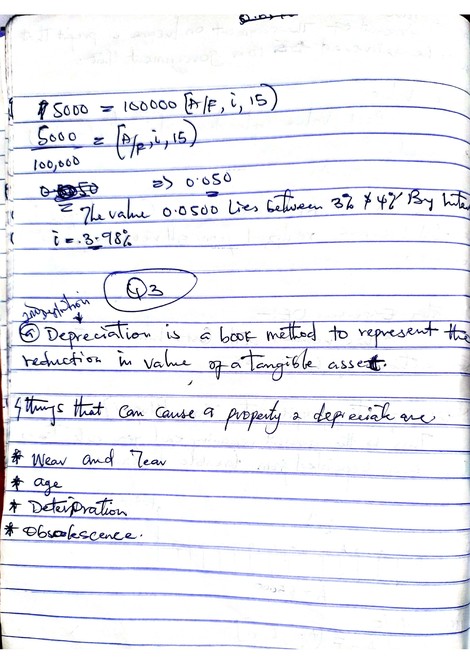 $5000 = 100000 [A/F, i, 15)
5000 = [A/F, i, 15)
100,000
=> 0.050
The value 0.0500 lies between 3% & 4% By Inte
i = 3.98%
Q3
Depreciation is a book method to represent the
reduction in value of a tangible asset.
4 things that can cause a property 2 depreciate are
* Wear and Tear
* age
* Deterioration
* Obsolescence.